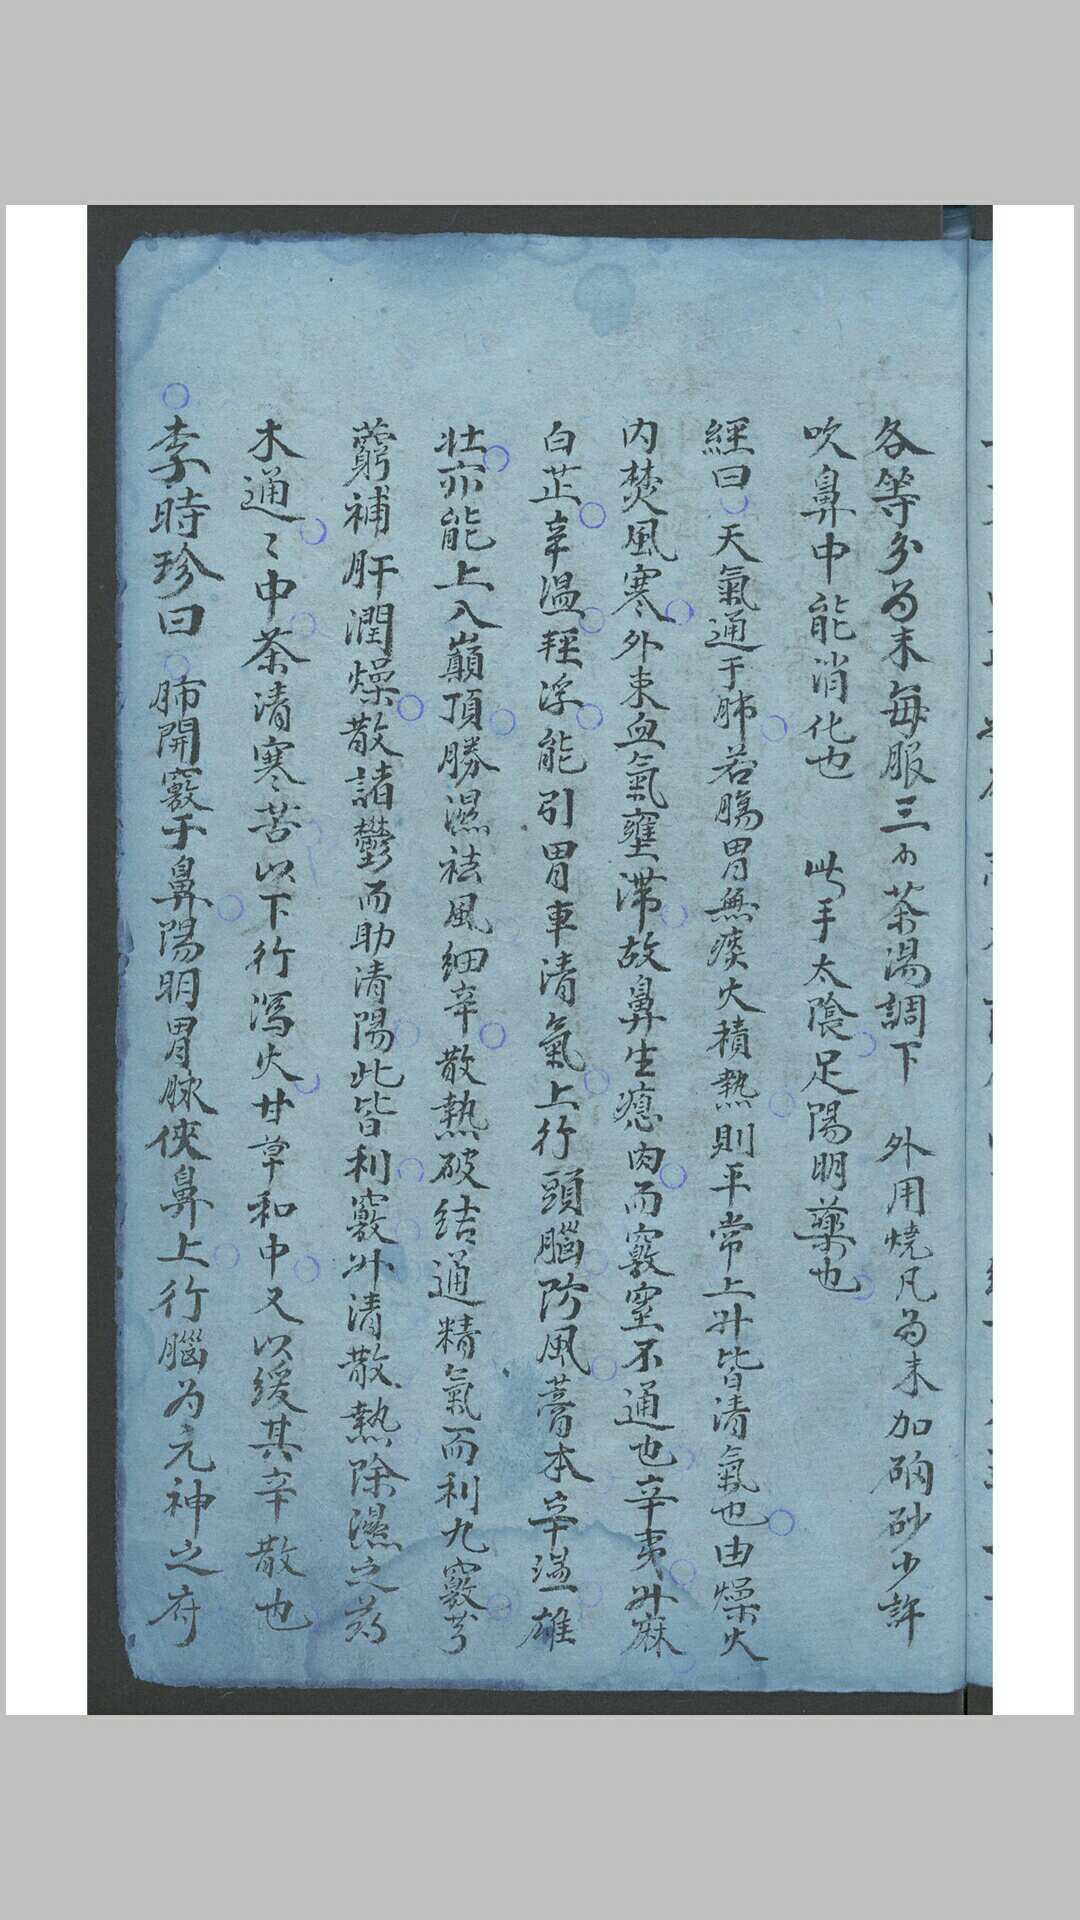 各等分为末每服三小茶湯調下　外用燒凡为末加硇砂少許
吹鼻中能消化也　此手太陰足陽明藥也
經曰天氣通于肺若腸胃無痰火積熱則平常上升皆清氣也由燥火
内焚風寒外束血氣壅滯故鼻生瘜肉而竅窒不通也辛夷升麻
白芷辛温輕浮能引胃中清氣上行頭腦防風藁本辛温雄
壯亦能上入巔頂勝濕祛風細辛散熱破結通精氣而利九竅芎
藭補肝潤燥散諸鬱而助清陽此皆利竅升清散熱除濕之药
木通〻中茶清寒苦以下行瀉火甘草和中又以緩其辛散也
李時珍曰肺開竅于鼻陽明胃脉俠鼻上行腦为元神之府